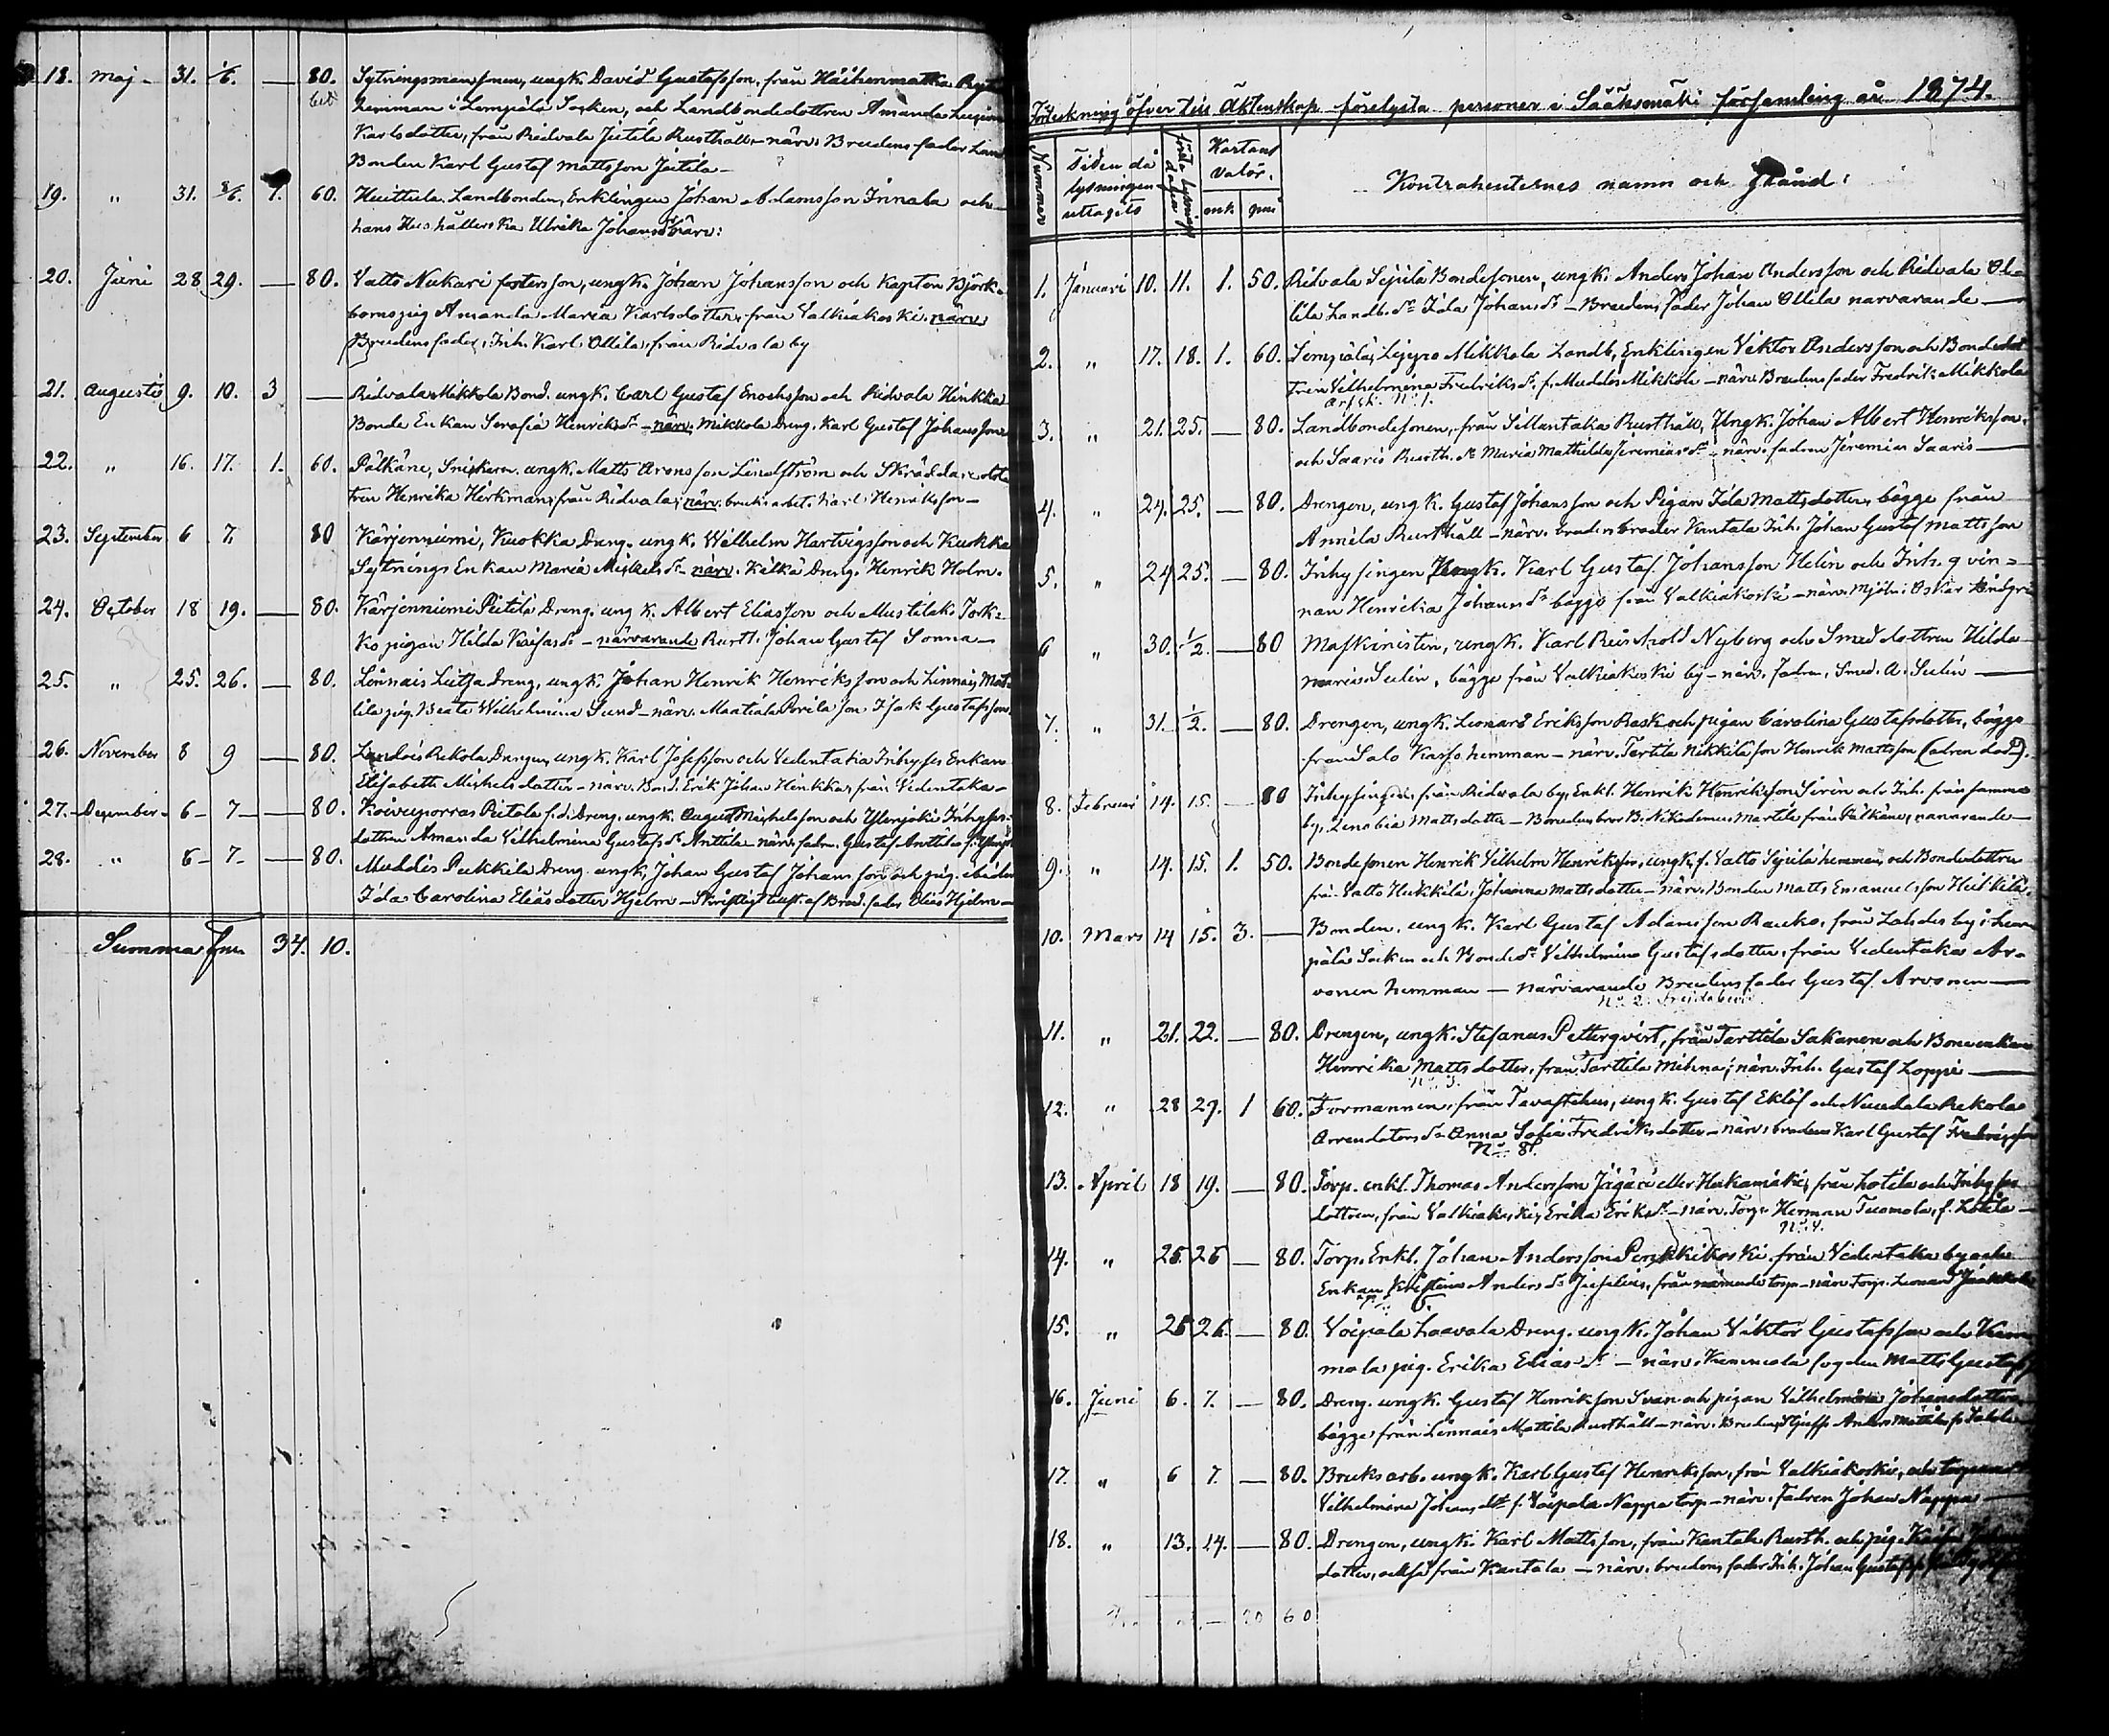 18. Maj 31. 1/6. — 80. Sytningsmansonen, ungk. David Gustafsson, från Häihenmatka
hemman i Lempäälä Socken, och Landbondedottren Amanda
Karlsdotter, från Ridvala Jutila Rusthåll – närv. Brudens fader
Bonden Karl Gustaf Mattsson Jutila –
19. " 31. 8/6. 1. 60. Huittula Landbonden, Enklingen Johan Adamsson Innala och
hans Hushållerska Ulrika Johansdr närv:
20. Juni 28 29. — 80. Valto Nukari fosterson, ungk. Johan Johansson och Kapten Björk-
boms pig Amanda Maria Karlsdotter, från Valkiakoski närv.
Brudens fader, Inh. Karl Ollila, från Ridvala by
21. Augusti 9. 10. 3 — Ridvala Mikkola Bond. ungk. Carl Gustaf Enochsson och Ridvala Hinkka
Bonde Enkan Serafia Henriksdr – närv. Mikkola Dreng. Karl Gustaf Johansson
22. " 16. 17. 1. 60. Pälkäne, Snickaren ungk. Matts Aronsson Lindström och Skräddaredot-
tren Henrika Hirkman, från Ridvala, närv. bruksarbet. Karl Henriksson –
23. September 6 7. 80 Kärjenniemi, Kuokka Dreng. ungk. Wilhelm Hartvigsson och Kuokka
Sytnings Enkan Maria Mickelsdr – närv. Kilkä Dreng. Henrik Holm.
24. October 18 19. — 80. Kärjenniemi Pietilä Dreng. ungk. Albert Eliasson och Mustilaks Tork-
ko pigan Hilda Kaisadr – närvarande Rusth. Johan Gustaf Sonna –
25. " 25. 26. — 80. Linnais Luttja Dreng, ungk. Johan Henrik Henriksson och Linnais Mat-
tila pig. Beata Wilhelmina Sund – närv. Maatiala Porila son Isak Gustafsson.
26. November 8 9 — 80. Rekola Drengen, ungk. Karl Josefsson och Vedentaka Inhyses Enkan
Elisabeth Mickelsdotter – närv. Bond. Erik Johan Hinkka, från Vedentaka –
27. December 6 – 7 — 80. Koivuporras Pietola f.d. Dreng. ungk. August Michelsson och Ylenjoki Inhyses-
dottren Amanda Vilhelmina Gustafsdr Anttila – närv. fadren Gustaf Anttila f.
28. " 6 – 7 — 80. Muddis Pukkila Dreng. ungk. Johan Gustaf Johansson och pig. ibidem
Ida Carolina Eliasdotter Hjelm – Skriftligt af Brud. fader Elias Hjelm –
Summa Fmk 34. 10.
Förteckning öfver till Äktenskap förelysta personer i Sääksmäki församling år 1874.
Nummer Tiden då lysningen uttagits Första lysningsdagen Kartans valör. mk pni Kontrahenternes namn och stånd.
1. Januari 10. 11. 1. 50. Ridvala Seppilä Bondesonen, ungk. Anders Johan Andersson och Ridvala Ol-
lila Landb. dr Ida Johansdr – Brudens fader Johan Ollila närvarande —
2. " 17. 18. 1. 60. Lempäälä, Lippo Mikkola Landb, Enklingen Viktor Andersson och Bondedot-
tren Vilhelmina Fredriksdr f. Muddis Mikkola – närv. Brudens fader Fredrik Mikkola
No 1.
3. " 21. 25. — 80. Landbondesonen, från Sillantaka Rusthåll, Ungk. Johan Albert Henriksson,
och Saaris Rusth. dr Maria Mathilda Jeremiasdr – närv. fadren Jeremias Saaris —
4. " 24. 25. — 80. Drengen, ungk. Gustaf Johansson och Pigan Ida Mattsdotter, bägge från
Annila Rusthåll – närv. brudens broder Kantala Inh. Johan Gustaf Mattsson
5. " 24 25. — 80. Inhysingen Ungk. Karl Gustaf Johansson Helin och Inh. qvin-
nan Henrika Johansdr bägge från Valkiakoski – närv. Mjöln. Oskar
6 " 30. 1/2. — 80 Maskinisten, ungk. Karl Reinhold Nyberg och Smeddottren Hilda
Maria Sulin, bägge från Valkiakoski by – närv. fadren, Smed. A. Sulin —
7. " 31. 1/2. — 80. Drengen, ungk. Leonard Eriksson Rask och pigan Carolina Gustafsdotter, bägge
från Salo Kaiso hemman – närv. Tarttila Nikkilä son Henrik Mattsson (adren död).
8. Februari 14. 15. — 80 Inhysingen, från Ridvala by, Enkl. Henrik Henriksson Sirén och Inh. från samma
by, Zenobia Mattsdotter – Brudens bror B. Nikodemus Martila från Pälkäne, närvarande —
9. " 14. 15. 1. 50. Bondesonen Henrik Vilhelm Henriksson, ungk. f. Valto Seppilä hemman, och Bondedottren
från Valto Heikkilä, Johanna Mattsdotter – närv. Bonden Matts Emanuelsson Heikkilä.
10. Mars 14 15. 3. — Bonden, ungk. Karl Gustaf Adamsson Rauko, från Lahdis by i Lem-
päälä Socken och Bondedr Vilhelmina Gustafsdotter, från Vedentaka Ar-
vonen hemman — närvarande Brudens fader Gustaf Arvonen —
No 2. Frejdebevis
11. " 21. 22. — 80. Drengen, ungk. Stefanus Petterqvist, från Tarttila Sakanen och Bondenkan
Henrika Mattsdotter, från Tarttila Mihna, närv. Inh. Gustaf Loppi —
No 3.
12. " 28 29. 1 60. Formannen, från Tavastehus, ungk. Gustaf Eklöf och Rekola
Arrendators dr Anna Sofia Fredriksdotter – närv. brodren Karl Gustaf Fredriksson
No 8.
13. April 18 19. — 80. Torp. enkl. Thomas Andersson Jägäri eller Hakamäki, från Lotila och Inhyses
dottren, från Valkiakoski, Erika Eriksdr – närv. Torp. Herman Tuomola, f. Lotila –
No 4.
14. " 25. 26 — 80. Torp. Enkl. Johan Andersson från Vedentaka by och
Enkan Kristina Andersdr, från nämnde torp – närv. Torp. Leonard Jaakkola
No 5.
15. " 25 26. — 80. Voipala Laavala Dreng. ungk. Johan Viktor Gustafsson och
mola pig. Erika Eliasdr – närv. fogden Matts
16. Juni 6. 7. — 80. Dreng. ungk. Gustaf Henriksson Svan och pigan Vilhelmina Johansdotter,
bägge från Linnais Mattila Rusthåll – närv. Brudens Styff. Anders
17. " 6 7. — 80. Bruksarb. ungk. Karl Gustaf Henriksson, från Valkiakoski, och
Vilhelmina Johansdt f. Voipala Nappa torp – närv. Fadren Johan Nappa —
18. " 13. 14. — 80. Drengen, ungk. Karl Mattsson, från Kantala Rusth. och pig.
dotter, också från Kantala – närv. brudens fader Inh. Johan
20 60